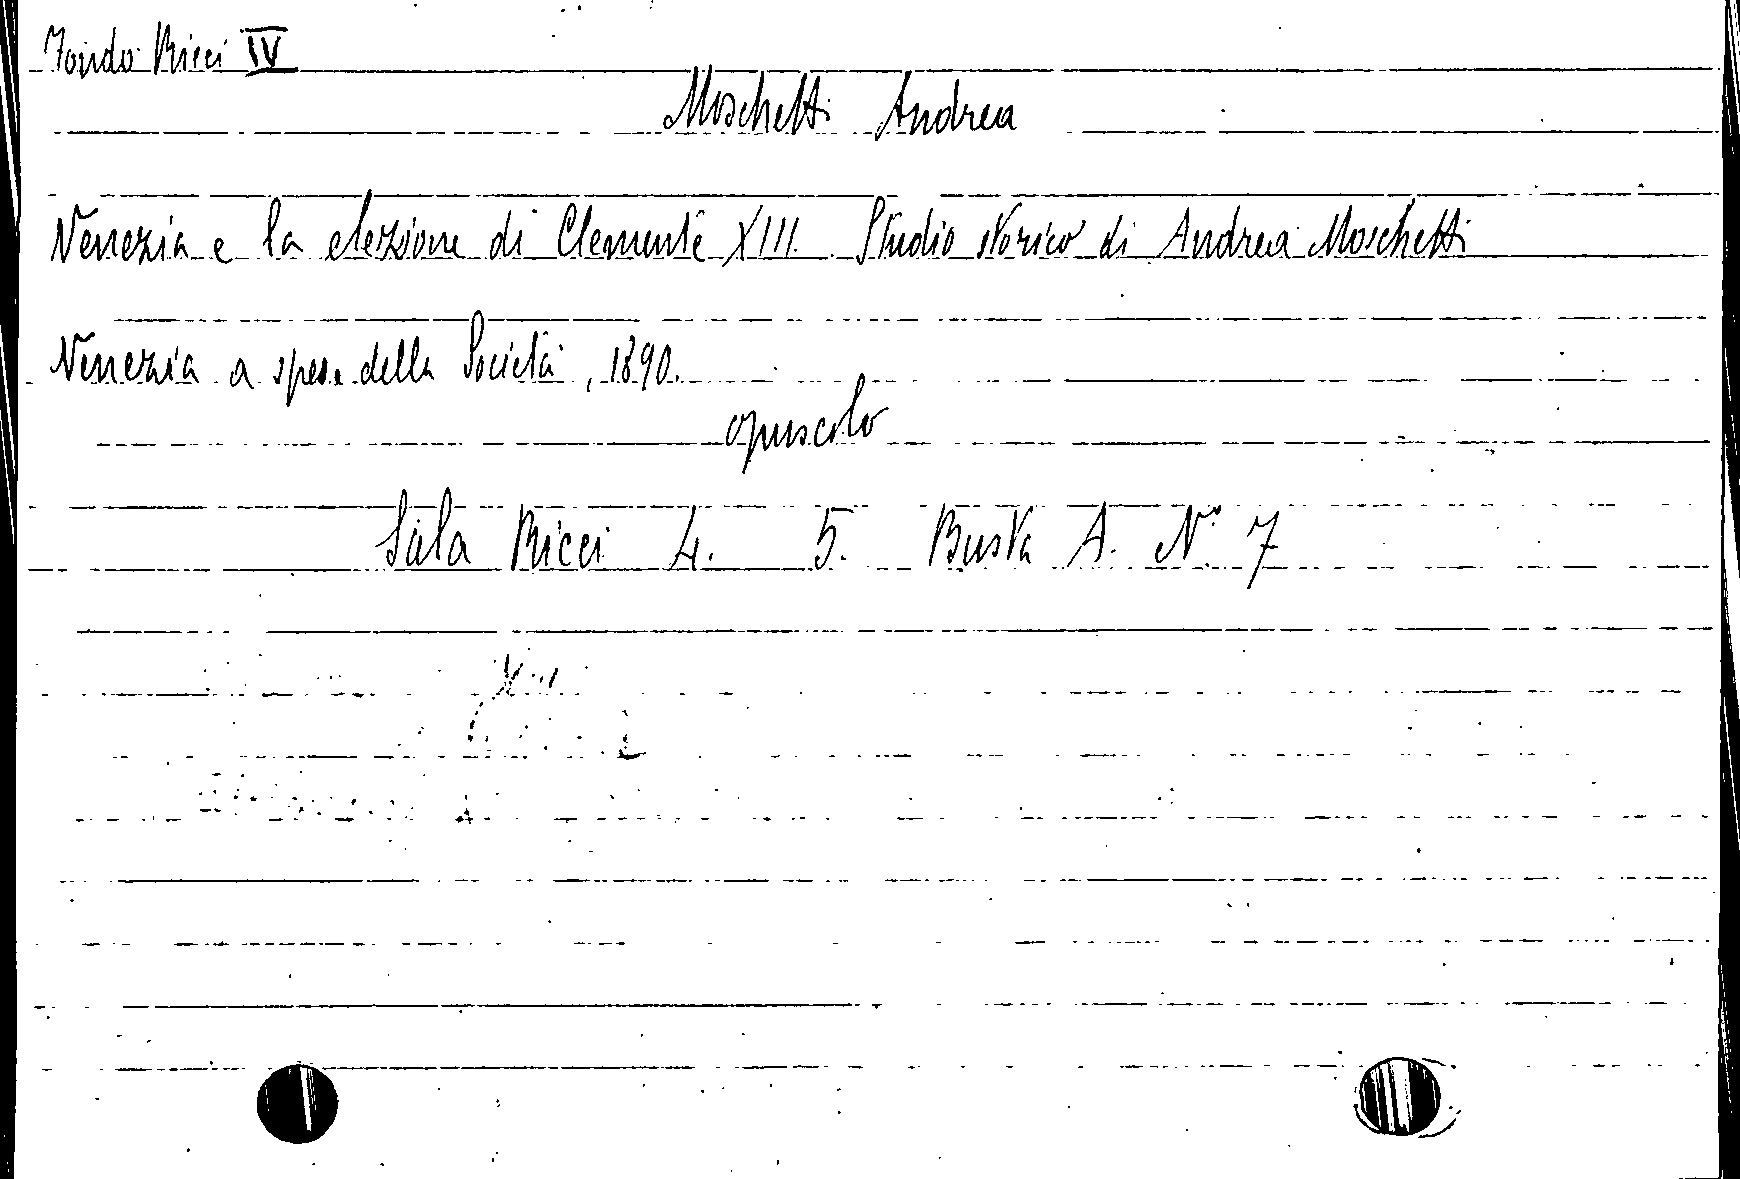 Fondo Ricci IV
Moschetti Andrea
Venezia e la elezione di Clemente XIII. Studio storico di Andrea Moschetti
Venezia a spese della Società, 1890.
opuscolo
Sala Ricci 4. 5. Busta A. N° 7